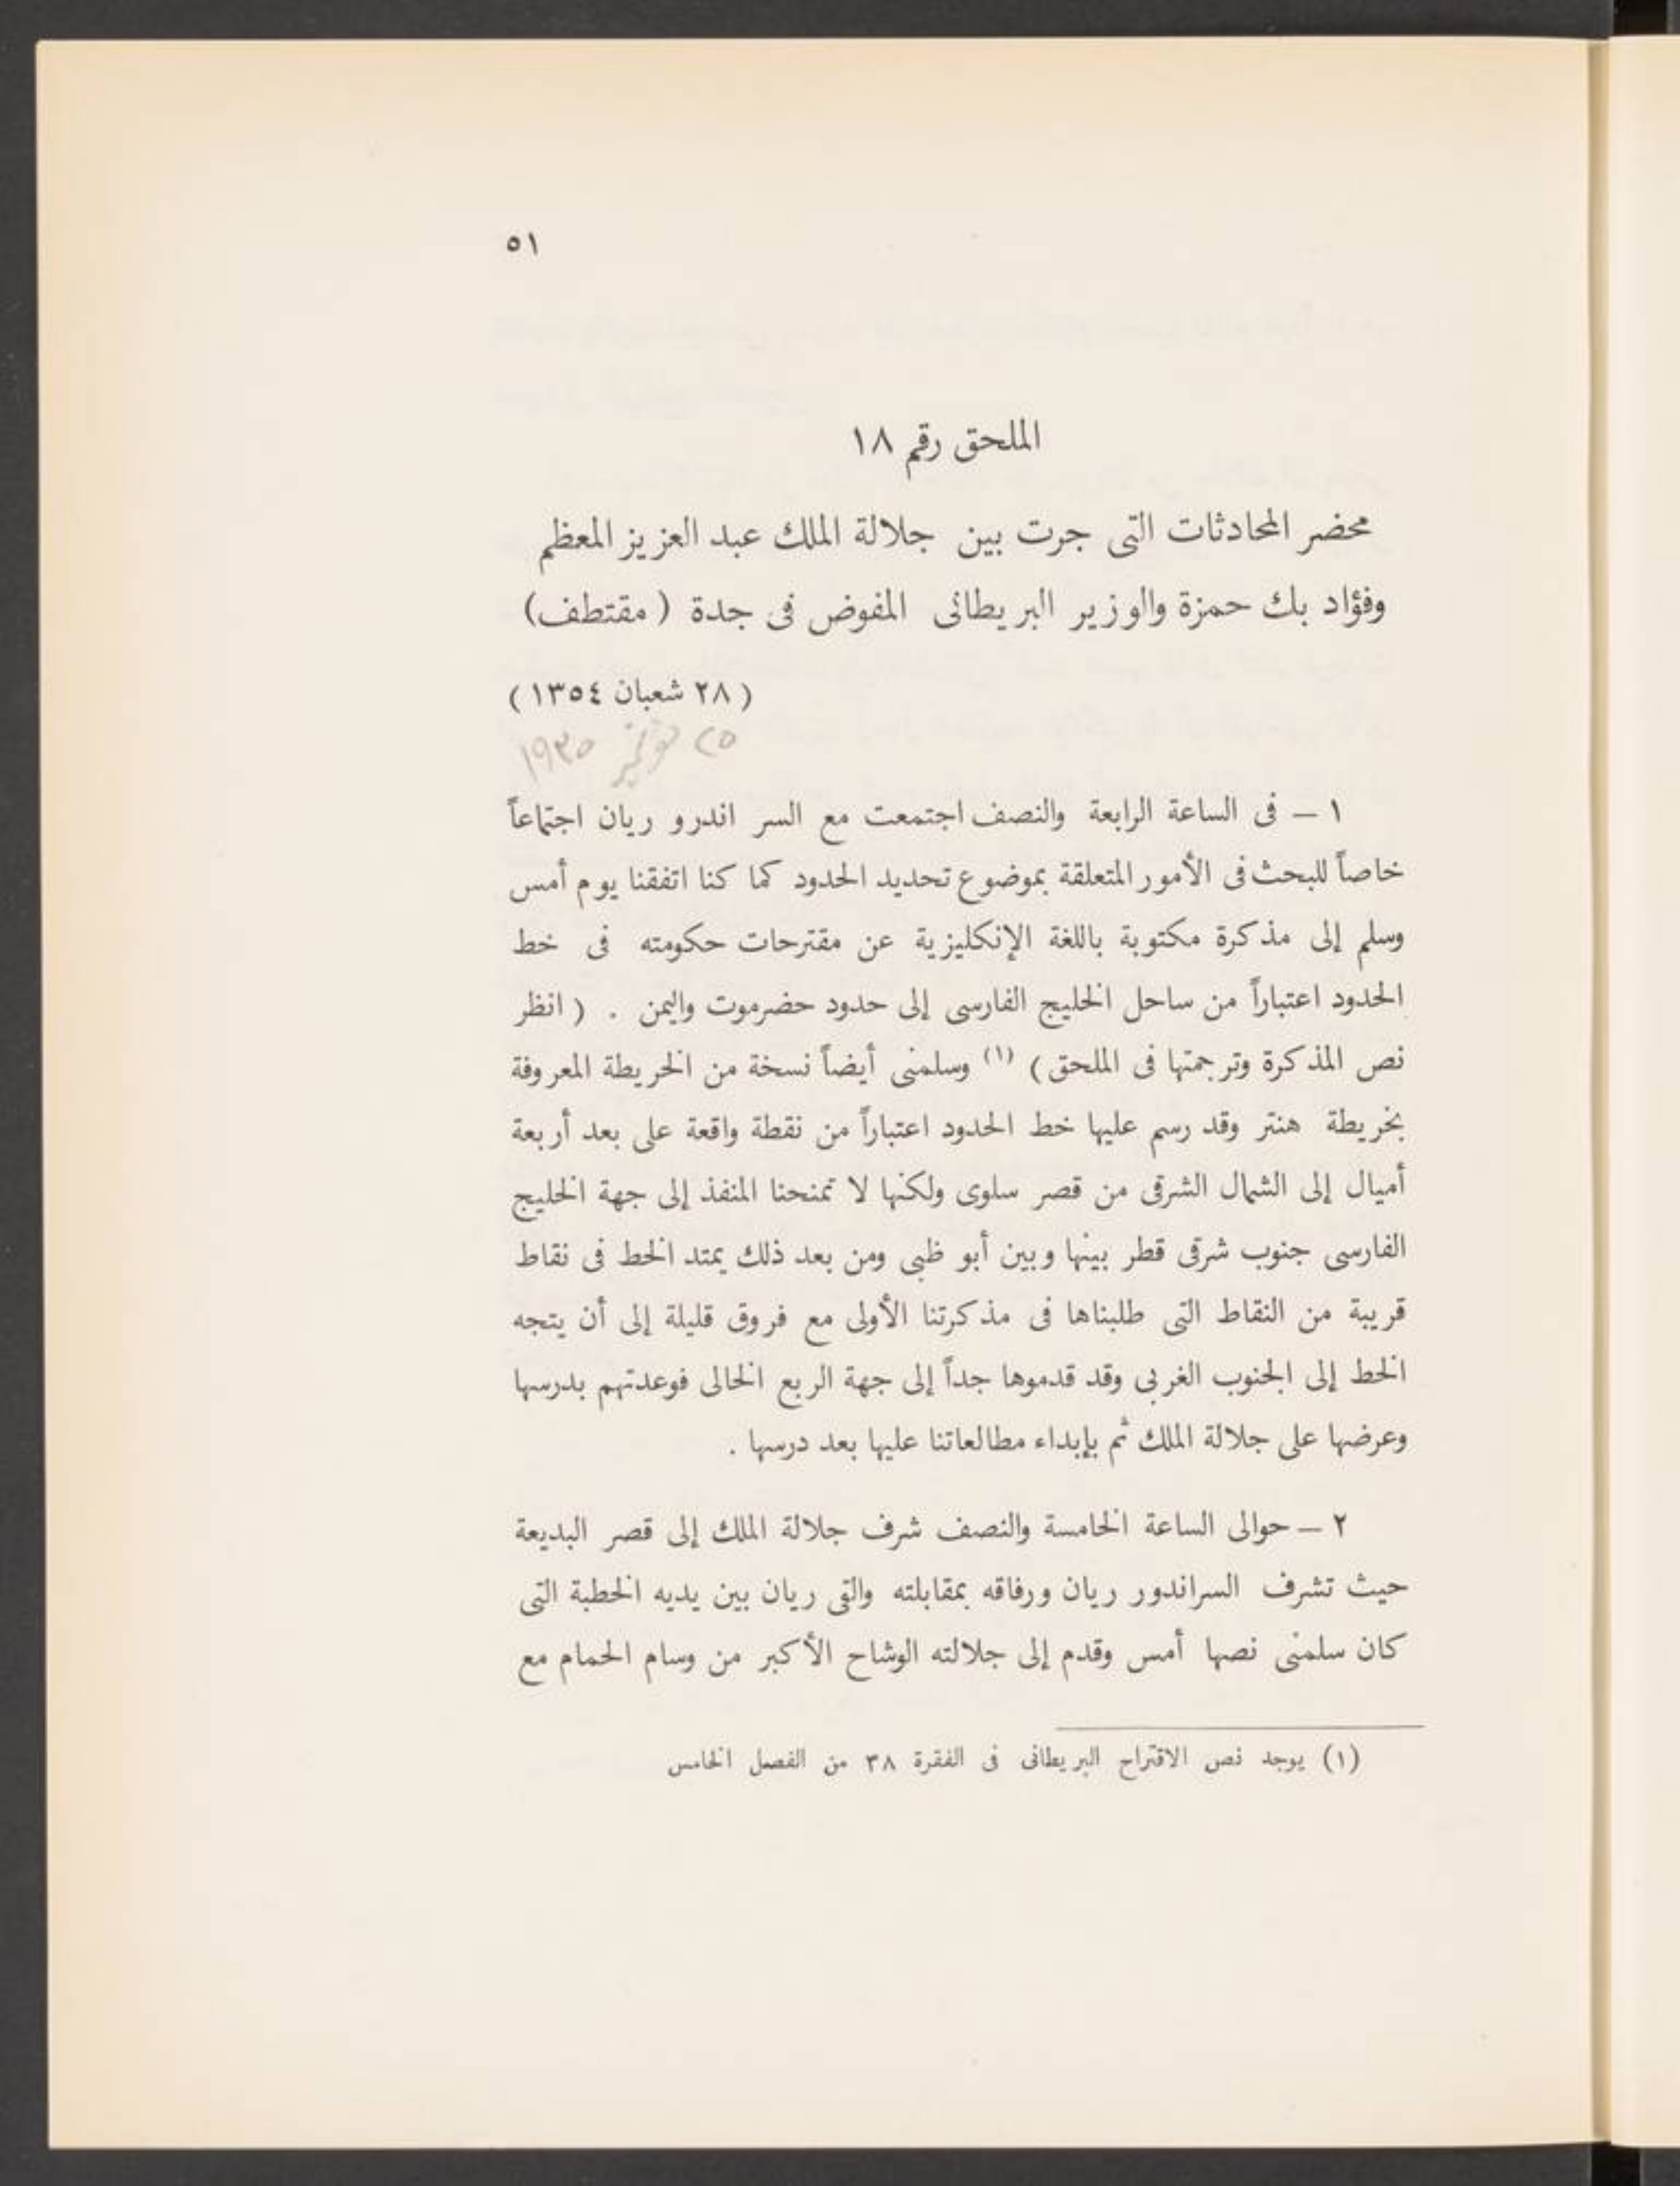 ٥١
الملحق رقم ١٨
محضر المحادثات التى جرت بين جلالة الملك عبد العزيز المعظم
وفؤاد بك حمزة والوزير البريطانى المفوض فى جدة ( مقتطف )
( ٢٨ شعبان ١٣٥٤ )
٢٥ نوفمبر ١٩٣٥
١ – فى الساعة الرابعة والنصف اجتمعت مع السر اندرو ريان اجتماعاً
خاصاً للبحث فى الأمور المتعلقة بموضوع تحديد الحدود كما كنا اتفقنا يوم أمس
وسلم إلى مذكرة مكتوبة باللغة الإنكليزية عن مقترحات حكومته فى خط
الحدود اعتباراً من ساحل الخليج الفارسى إلى حدود حضرموت واليمن . ( انظر
نص المذكرة وترجمتها فى الملحق ) (١) وسلمنى أيضاً نسخة من الخريطة المعروفة
بخريطة هنتر وقد رسم عليها خط الحدود اعتباراً من نقطة واقعة على بعد أربعة
أميال إلى الشمال الشرقى من قصر سلوى ولكنها لا تمنحنا المنفذ إلى جهة الخليج
الفارسى جنوب شرقى قطر بينها وبين أبو ظبى ومن بعد ذلك يمتد الخط فى نقاط
قريبة من النقاط التى طلبناها فى مذكرتنا الأولى مع فروق قليلة إلى أن يتجه
الخط إلى الجنوب الغربى وقد قدموها جداً إلى جهة الربع الخالى فوعدتهم بدرسها
وعرضها على جلالة الملك ثم بإبداء مطالعاتنا عليها بعد درسها .
٢ – حوالى الساعة الخامسة والنصف شرف جلالة الملك إلى قصر البديعة
حيث تشرف السراندور ريان ورفاقه بمقابلته والتى ريان بين يديه الخطبة التى
كان سلمنى نصها أمس وقدم إلى جلالته الوشاح الأكبر من وسام الحمام مع
(١) يوجد نص الاقتراح البريطانى فى الفقرة ٣٨ من الفصل الخامس